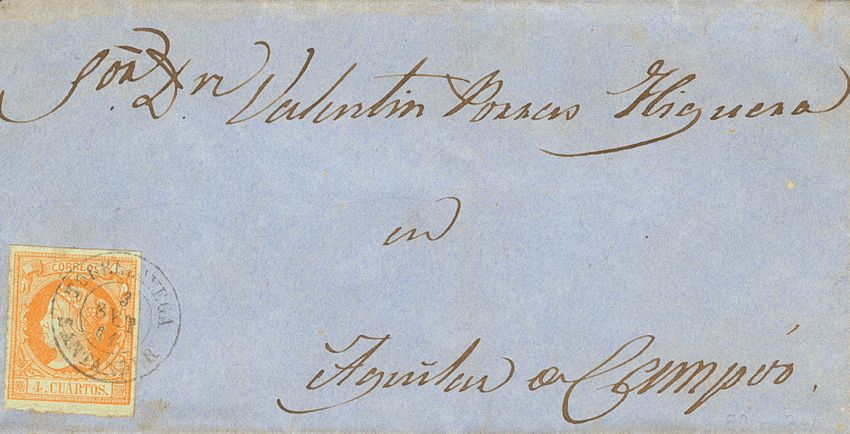 Sor. Dn Valentin Porras Higuera
en
Aguilar de Campóo.
CORREOS
4. CUARTOS.
TORRELAVEGA
8
SET
61
SANTANDER